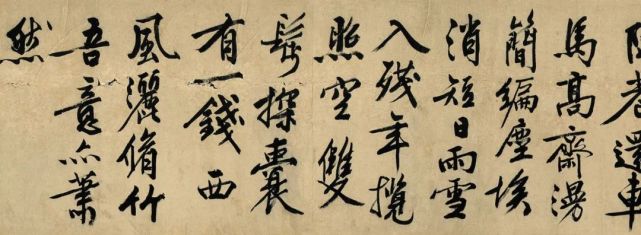 巷還車
馬高齋漫
簡編塵埃
消短日雨雪
入殘年攬
照空雙
髩探囊
有一錢西
風灑脩竹
吾意亦蕭
然